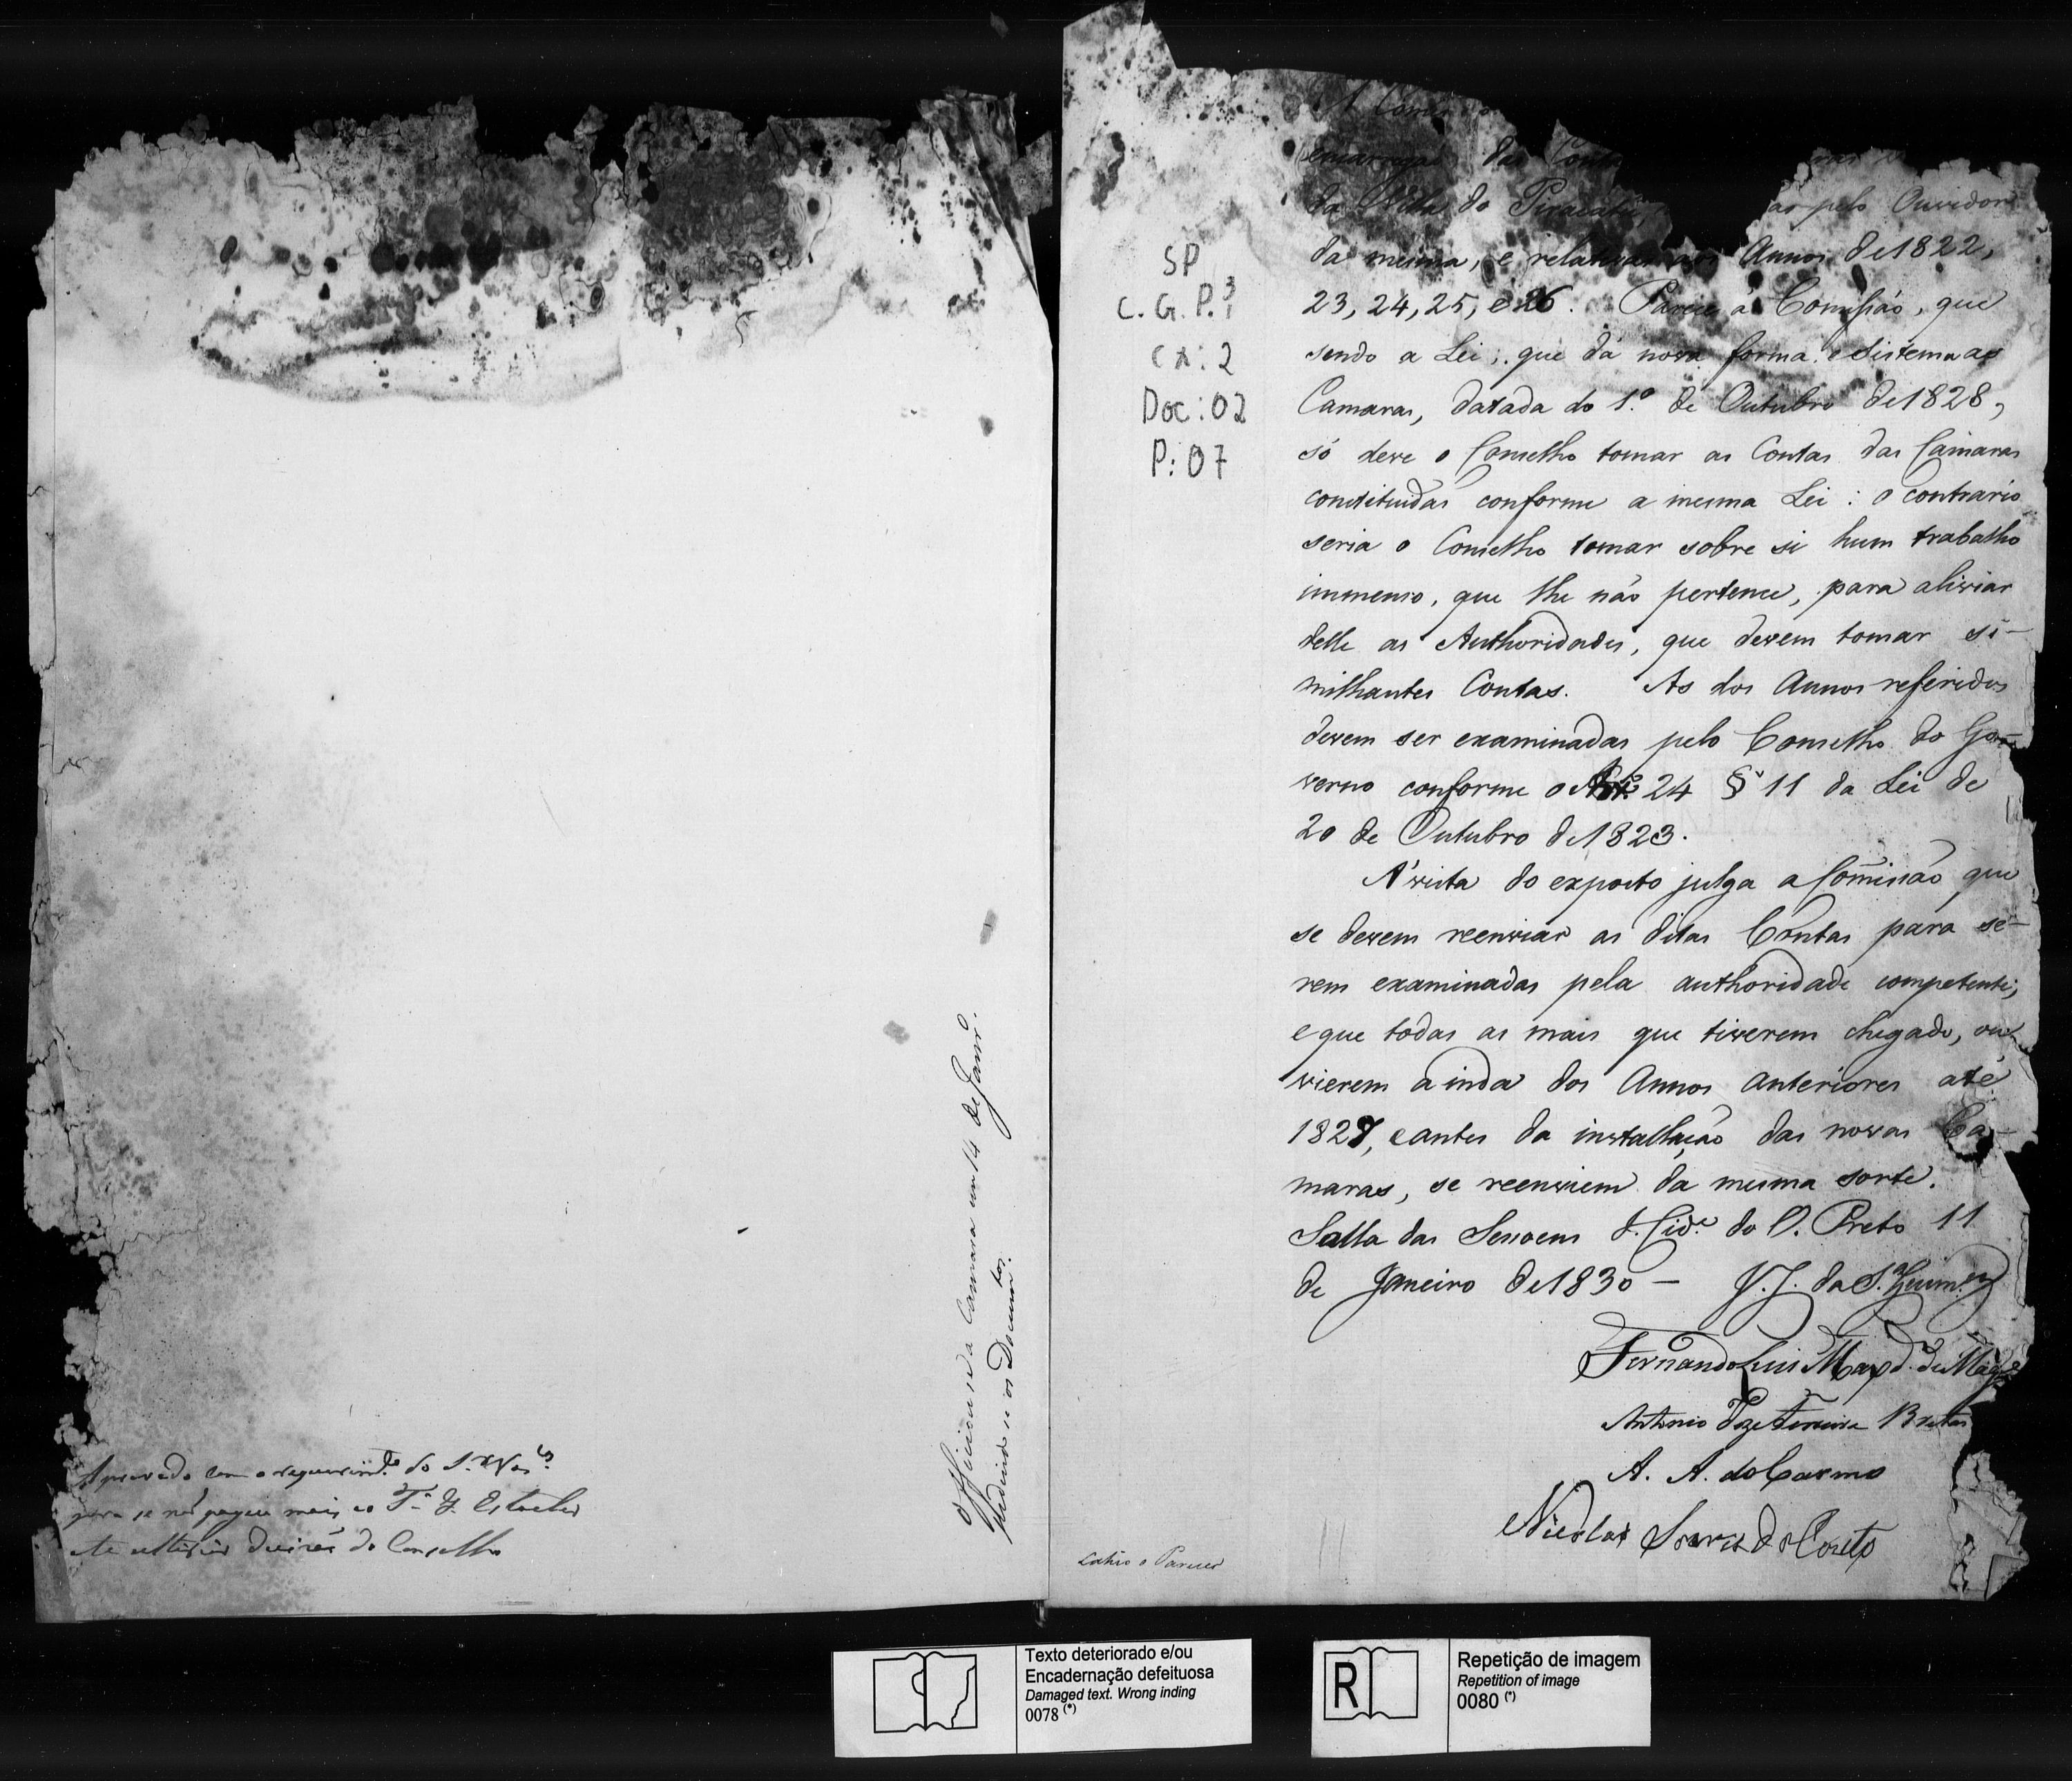 Aprovado com o requerim.to do S.r Vas.os
para se não pagar mais ao
ate ulterior decizão do Conselho
Officiou se a Camara em 14 de Janr.o
pedindo se os Docum.tos
SP
C. G. P. 3
1
CX: 2
Doc: 02
P: 07
A Comis
encarregada das Contas
da Villa do Paracatú, as pelo Ouvidor
da mesma, e relativas aos Annos de 1822,
23, 24, 25, e 26. Parece á Comissão, que
sendo a Lei, que dá nova forma e sistema as
Camaras, datada do 1.º de Outubro de 1828,
só deve o Conselho tomar as Contas das Camaras
constituidas conforme a mesma Lei: o contrario
seria o Conselho tomar sobre si hum trabalho
immenso, que lhe não pertence, para aliviar
delle as Authoridades, que devem tomar si-
milhantes Contas. As dos Annos referidos
devem ser examinadas pelo Conselho do Go-
verno conforme o Art.º 24 § 11 da Lei de
20 de Outubro de 1823.
Á vista do exposto julga a Comissão que
se devem reenviar as ditas Contas para se-
rem examinadas pela authoridade competente;
e que todas as mais que tiverem chegado, ou
vierem ainda dos Annos anteriores até
1828, e antes da installação das novas Ca-
maras, se reenviem da mesma sorte.
Salla das Sessoens d. Cid.e do O. Preto 11
de Janeiro de 1830 — J. J. da S.a Guim.es
Fernando Luis Maxd.o de Mag.es
Antonio Joze Ferreira Bretas
A. A. do Carmo
Nicolao Soares do Couto
cahio o Parecer
11
Texto deteriorado e/ou
Encadernação defeituosa
Damaged text. Wrong inding
0078 (*)
R
Repetição de imagem
Repetition of image
0080 (*)